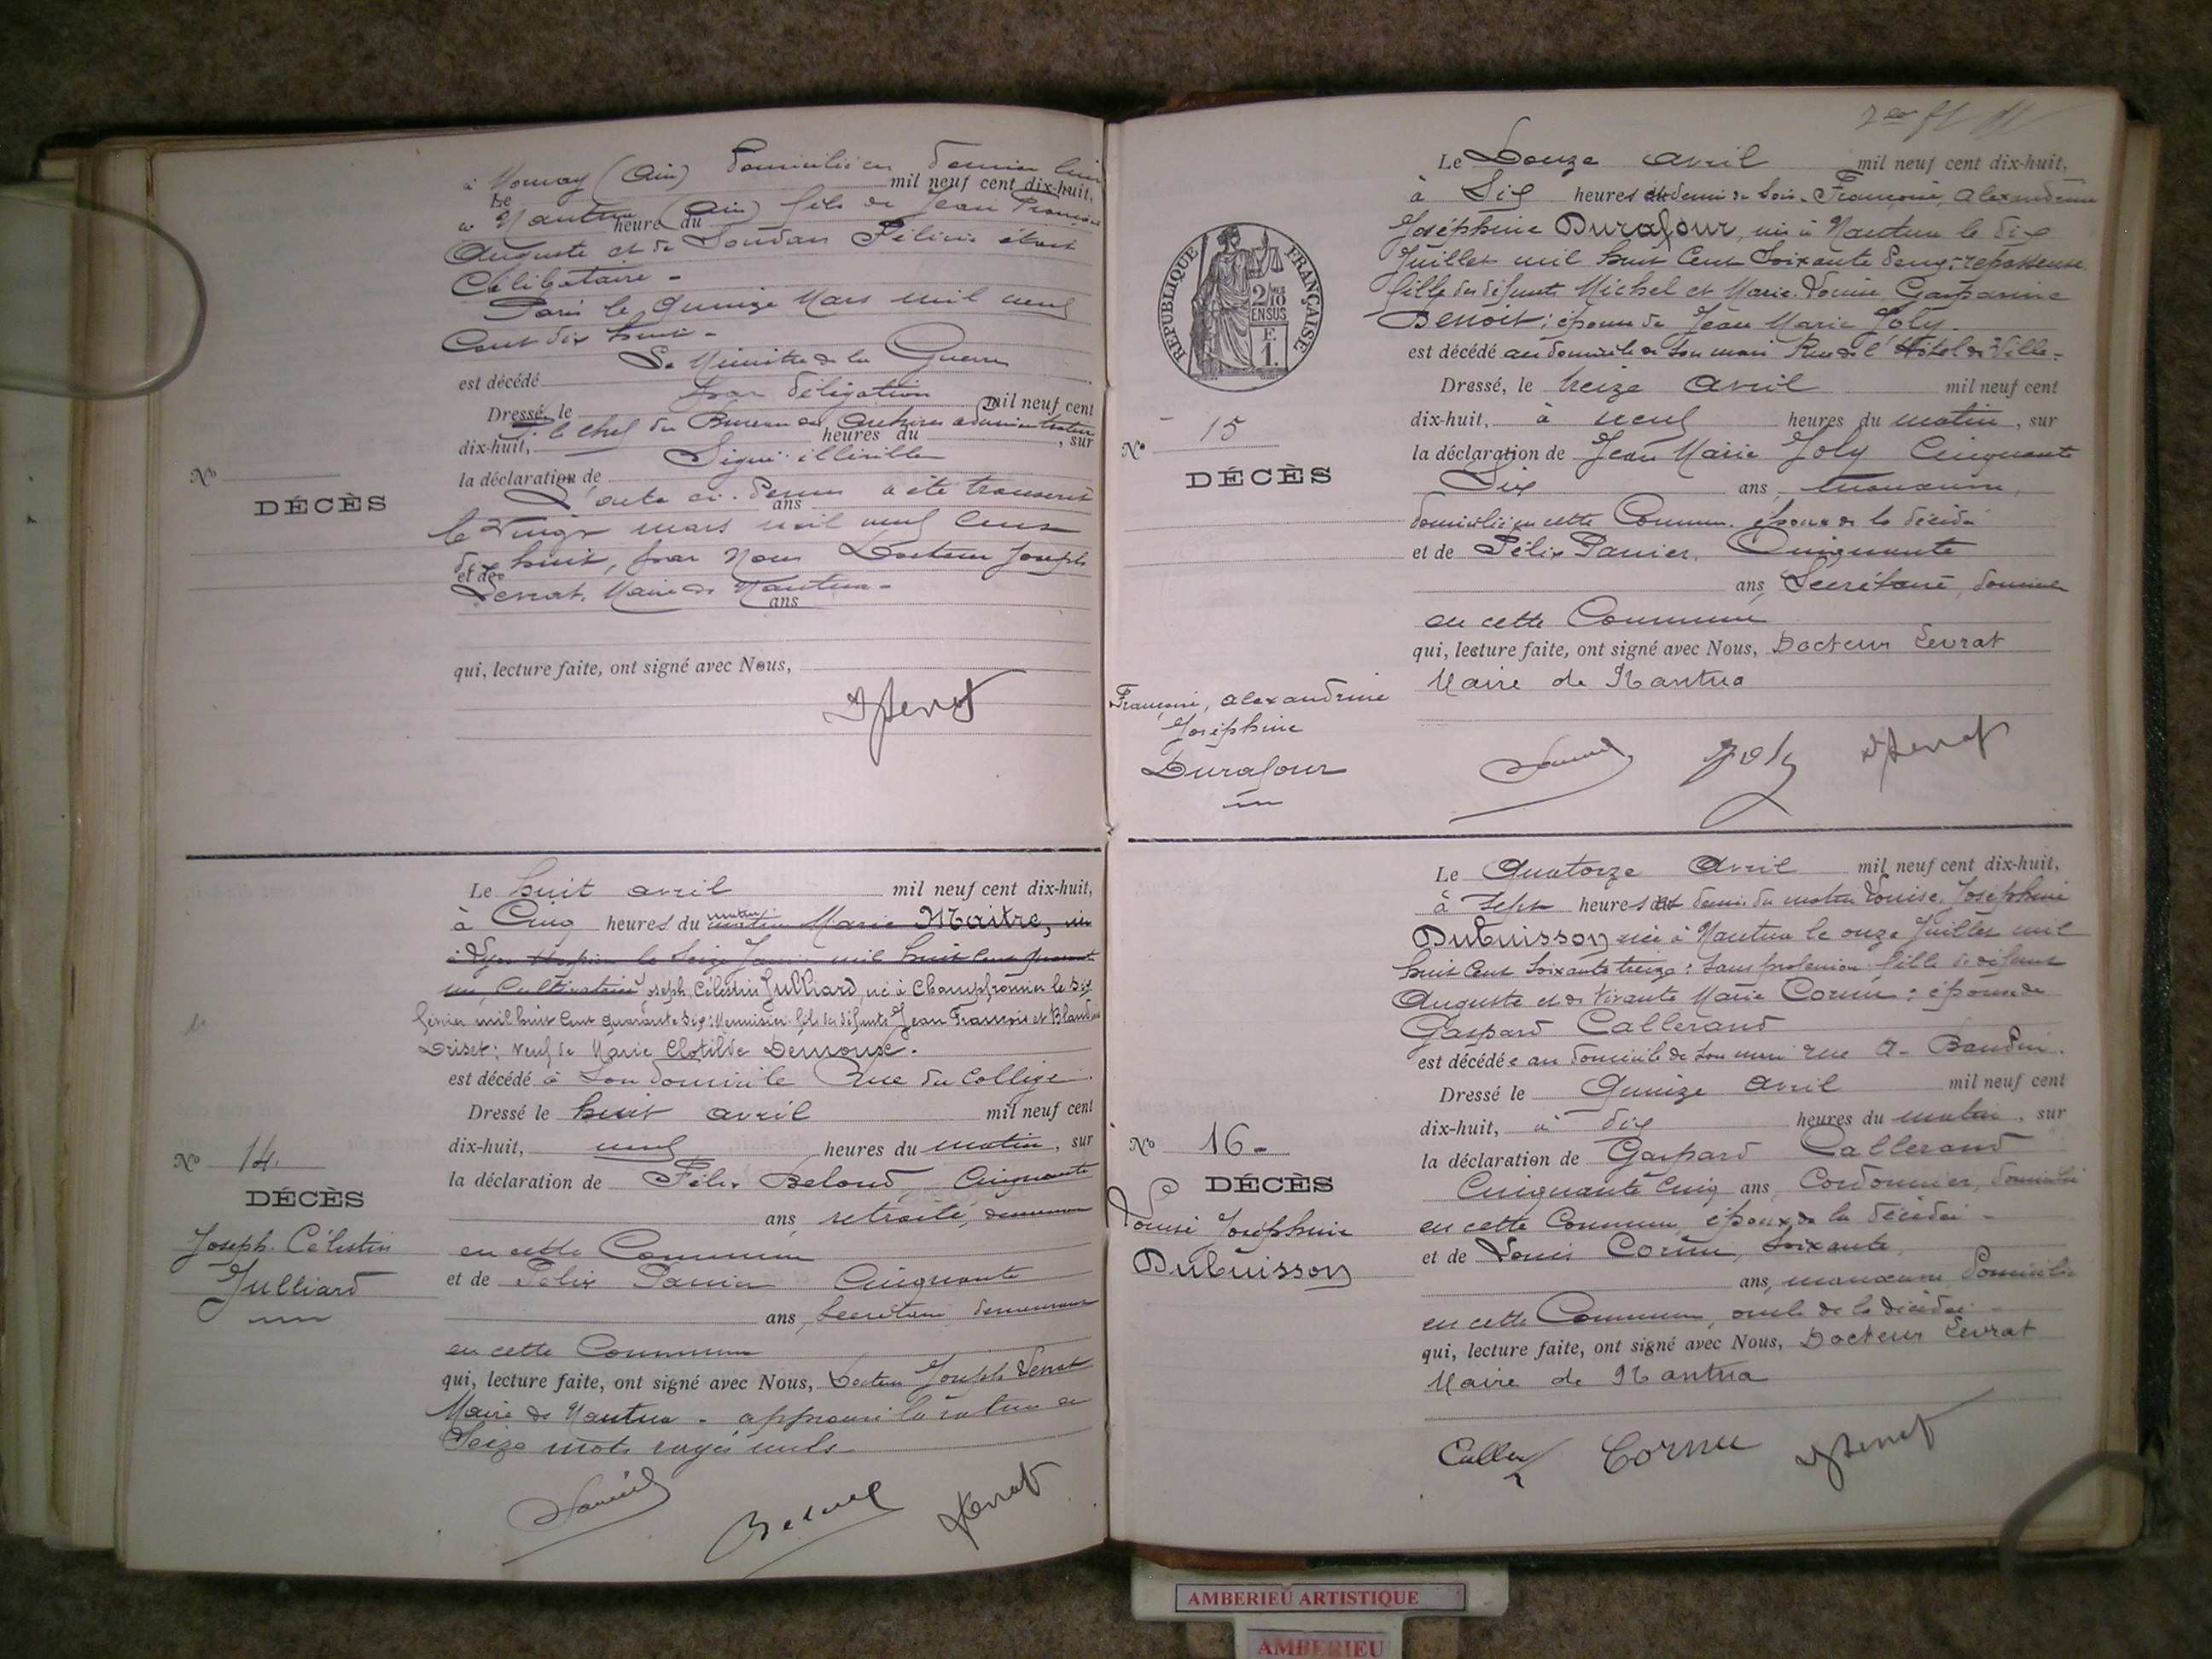 à Mornay (Ain) domicilié en dernier lieu
Le mil neuf cent dix-huit,
à Nantua (Ain) fils de Jean François
heure du
Auguste et de Soudan Féline était
Célibataire -
Paris le quinze Mars mil neuf
Cent dix huit -
Le Ministre de la Guerre
est décédé
par délégation
Dressé, le mil neuf cent
P. le chef du Bureau des Archives administratives
dix-huit, heures du , sur
Signé: illisible
la déclaration de
L'acte ci-dessus a été transcrit
ans
le vingt mars mil neuf cent
dix huit, par Nous Docteur Joseph
et de
Levrat, Maire de Nantua -
ans
qui, lecture faite, ont signé avec Nous,
No
DÉCÈS
Le huit avril mil neuf cent dix-huit,
à Cinq heures du matin Marie Maitre, née
le Seize Janvier mil huit cent quarante
un, Cultivatrice Joseph Célestin Julliard, né à Champfromier le dix
février mil huit cent quarante six: Menuisier fils des défunts Jean François et Blandine
Driset; veuf de Marie Clotilde Demoux.
est décédé à son domicile Rue du Collège.
Dressé le huit avril mil neuf cent
dix-huit, neuf heures du matin, sur
la déclaration de Félix Beloud, Cinquante
ans retraité, demeurant
en cette Commune
et de Félix Panier Cinquante
ans, Secrétaire demeurant
en cette Commune
qui, lecture faite, ont signé avec Nous, Docteur Joseph Levrat
Maire de Nantua - approuvé la rature de
Seize mots rayés nuls
No 14.
DÉCÈS
Joseph. Célestin
Julliard
Panier Beloud Levrat
RÉPUBLIQUE FRANÇAISE
2/10
EN SUS
F
1.
Le Douze avril mil neuf cent dix-huit,
à Six heures et demi du soir. Françoise, Alexandrine
Joséphine Durafour, née à Nantua le dix
Juillet mil huit cent soixante deux: repasseuse
fille des défunts Michel et Marie. Louise, Gasparine
Benoit; épouse de Jean Marie Joly.
est décédé au domicile de son mari Rue de l'Hôtel de Ville -
Dressé, le treize avril mil neuf cent
dix-huit, à neuf heures du matin, sur
la déclaration de Jean Marie Joly Cinquante
Six ans, manœuvre,
domicilié en cette Commune. époux de la décédée
et de Félix Panier, Cinquante
ans, Secrétaire, domicilié
en cette Commune
qui, lecture faite, ont signé avec Nous, Docteur Levrat
Maire de Nantua
No 15
DÉCÈS
Françoise, Alexandrine
Joséphine
Durafour
Panier Joly Levrat
Le Quatorze Avril mil neuf cent dix-huit,
à Sept heures et demi du matin Louise, Joséphine
Dubuisson née à Nantua le onze Juillet mil
huit cent soixante treize: sans profession fille de défunt
Auguste et de vivante Marie Cornu; épouse de
Gaspard Callerand
est décédée au domicile de son mari rue A. Baudin.
Dressé le Quinze avril mil neuf cent
dix-huit, à dix heures du matin, sur
la déclaration de Gaspard Callerand
Cinquante Cinq ans, Cordonnier, domicilié
en cette Commune, époux de la décédée -
et de Louis Cornu, Soixante
ans, manœuvre domicilié
en cette Commune, oncle de la décédée -
qui, lecture faite, ont signé avec Nous, Docteur Levrat
Maire de Nantua
No 16 -
DÉCÈS
Louise Joséphine
Dubuisson
Caller Cornu Levrat
AMBERIEU ARTISTIQUE
AMBERIEU